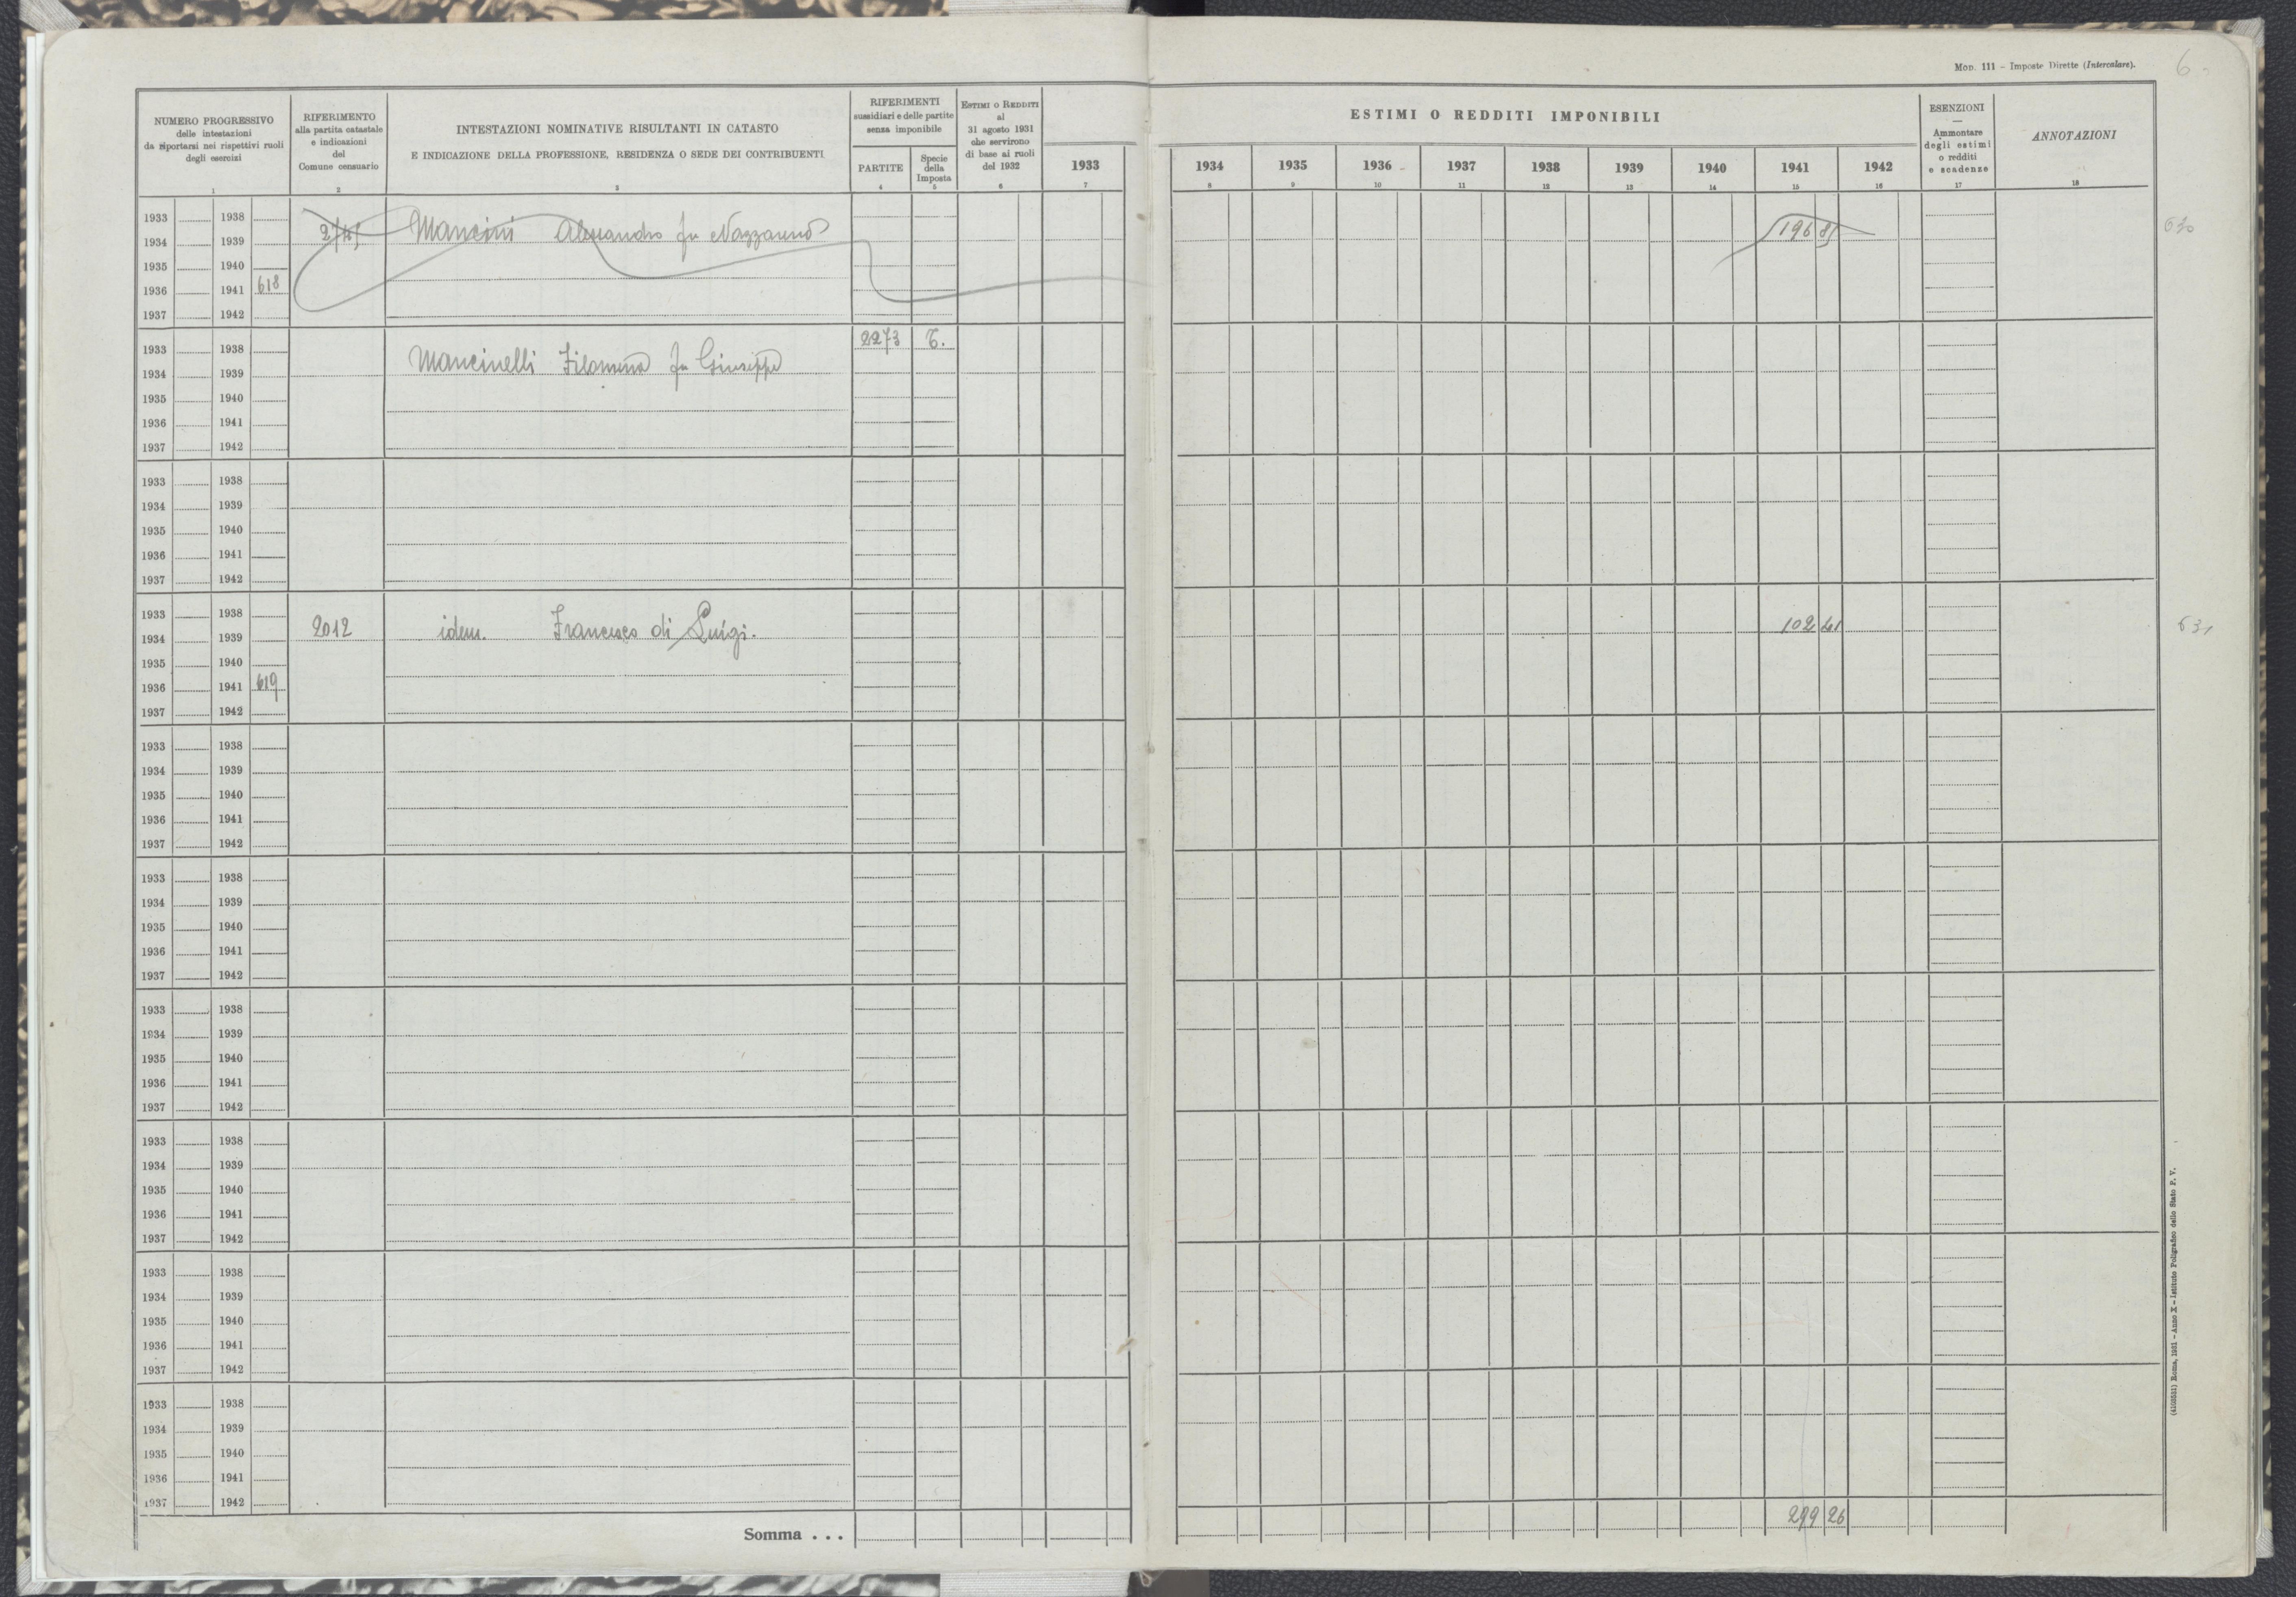 Mod. 111 – Imposte Dirette (Intercalare).
6
NUMERO PROGRESSIVO
delle intestazioni
da riportarsi nei rispettivi ruoli
degli esercizi
1
RIFERIMENTO
alla partita catastale
e indicazioni
del
Comune censuario
2
INTESTAZIONI NOMINATIVE RISULTANTI IN CATASTO
E INDICAZIONE DELLA PROFESSIONE, RESIDENZA O SEDE DEI CONTRIBUENTI
3
RIFERIMENTI
sussidiari e delle partite
senza imponibile
PARTITE
4
Specie
della
Imposta
5
Estimi o Redditi
al
31 agosto 1931
che servirono
di base ai ruoli
del 1932
6
1933
7
ESTIMI O REDDITI IMPONIBILI
1934 1935 1936 1937 1938 1939 1940 1941 1942
8 9 10 11 12 13 14 15 16
ESENZIONI
—
Ammontare
degli estimi
o redditi
e scadenze
17
ANNOTAZIONI
18
1933 1938
1934 1939 Mancini Alessandro fu Nazzareno 196 85 630
1935 1940
1936 1941 618
1937 1942
1933 1938 2273 T.
1934 1939 Mancinelli Filomena fu Giuseppe
1935 1940
1936 1941
1937 1942
1933 1938
1934 1939
1935 1940
1936 1941
1937 1942
1933 1938
1934 1939 2012 idem. Francesco di Luigi. 102 41 631
1935 1940
1936 1941 619
1937 1942
1933 1938
1934 1939
1935 1940
1936 1941
1937 1942
1933 1938
1934 1939
1935 1940
1936 1941
1937 1942
1933 1938
1934 1939
1935 1940
1936 1941
1937 1942
1933 1938
1934 1939
1935 1940
1936 1941
1937 1942
1933 1938
1934 1939
1935 1940
1936 1941
1937 1942
1933 1938
1934 1939
1935 1940
1936 1941
1937 1942
Somma . . . 299 26
Roma, 1931 – Anno X – Istituto Poligrafico dello Stato P. V.